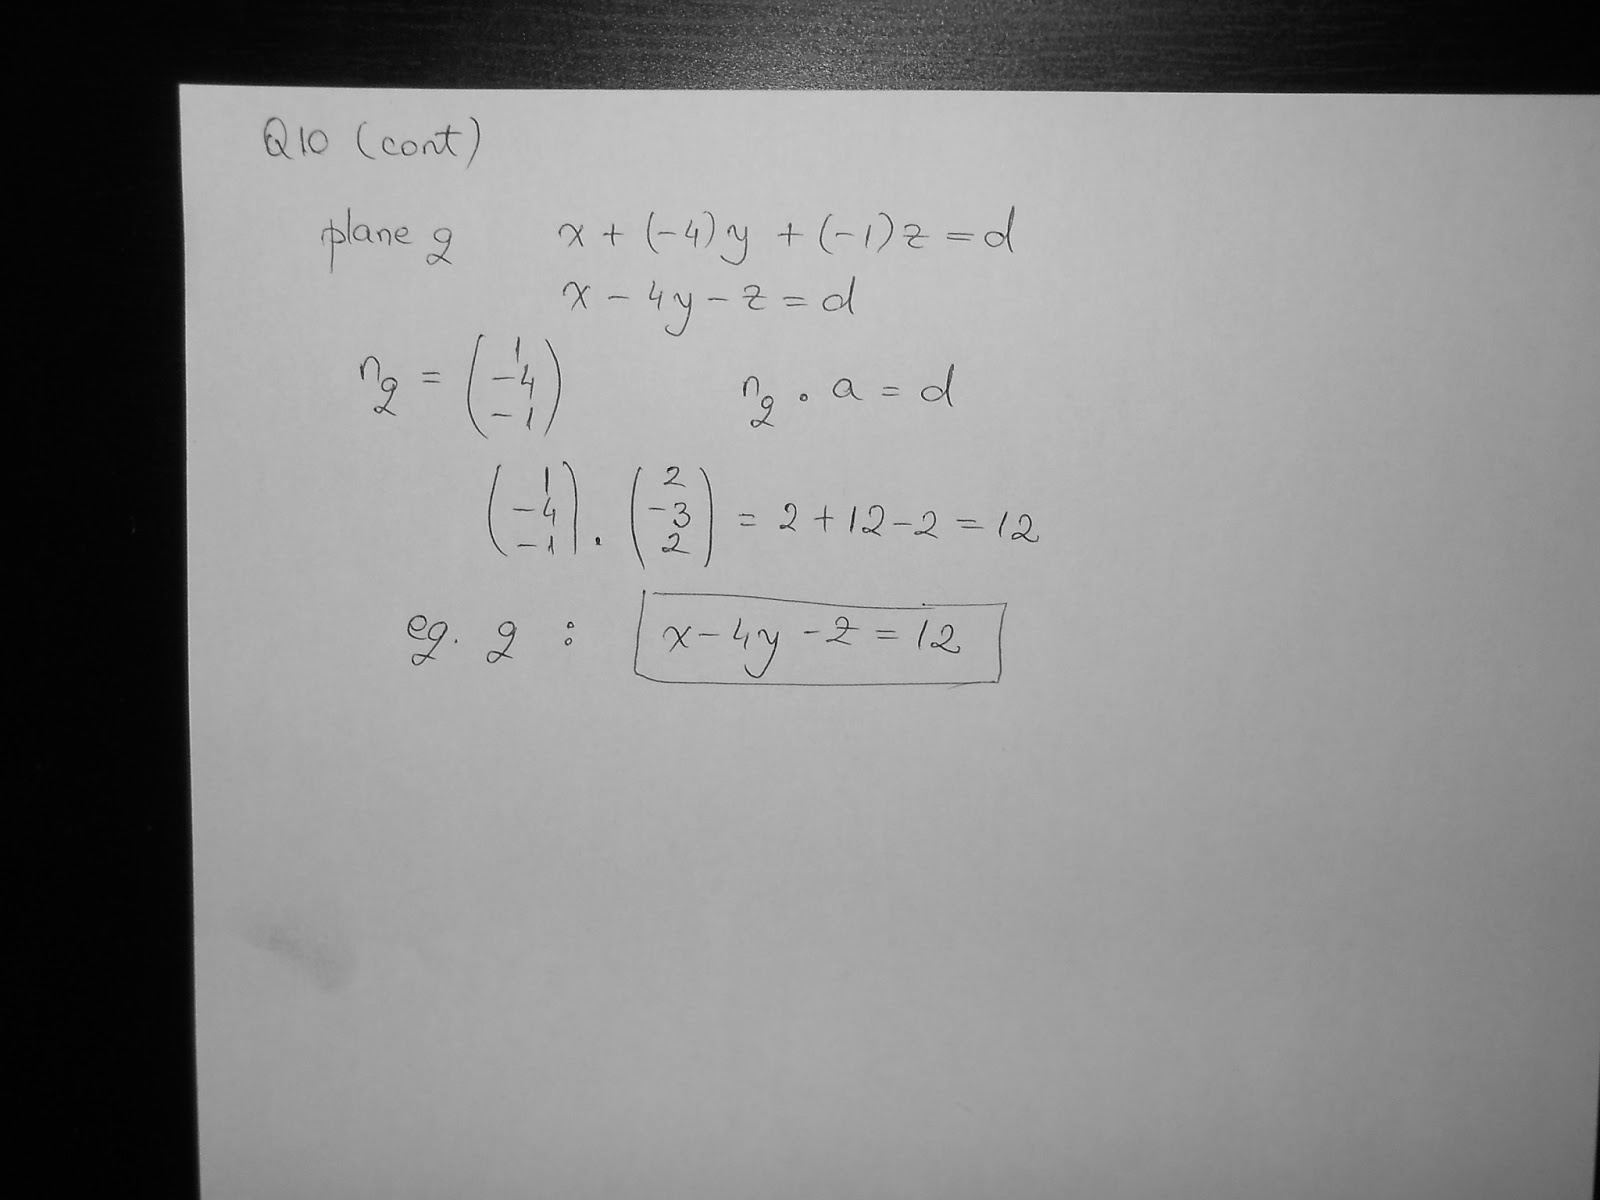 Q10 (cont)
plane q x + (-4)y + (-1)z = d
x - 4y - z = d
n_q = (1 -4 -1) n_q . a = d
(1 -4 -1) . (2 -3 2) = 2 + 12 - 2 = 12
eq. q : x - 4y - z = 12